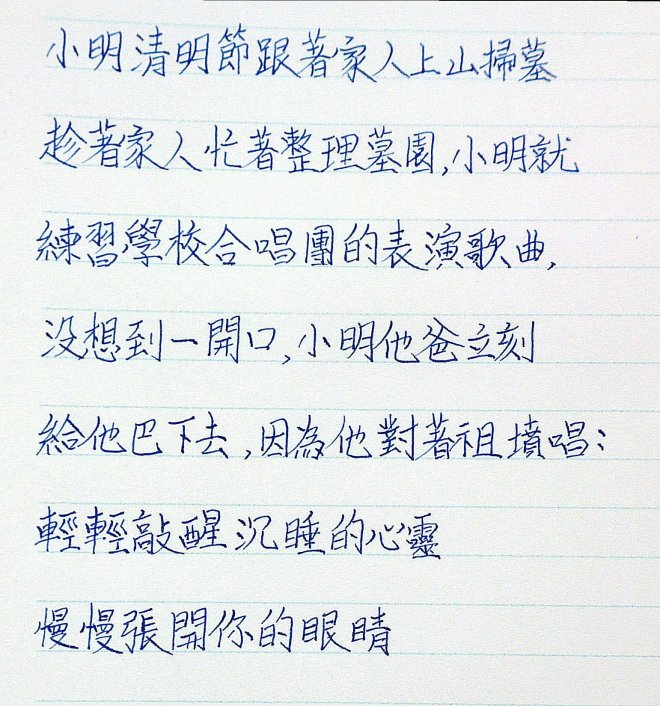 小明清明節跟著家人上山掃墓
趁著家人忙著整理墓園,小明就
練習學校合唱團的表演歌曲,
没想到一開口,小明他爸立刻
給他巴下去,因為他對著祖墳唱:
輕輕敲醒沉睡的心靈
慢慢張開你的眼睛